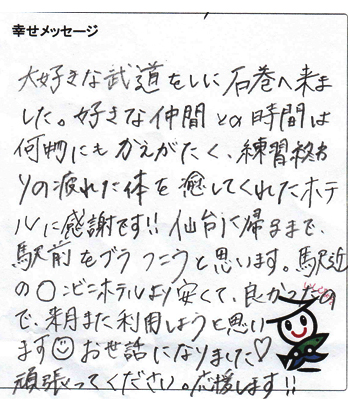 幸せメッセージ
大好きな武道をしに石巻へ来ま
した。好きな仲間との時間は
何物にもかえがたく、練習終わ
りの疲れた体を癒してくれたホテ
ルに感謝です!! 仙台に帰るまで、
駅前をブラつこうと思います。駅近
の〇ンビニホテルより安くて、良かったの
で、来月また利用しようと思い
ます☺お世話になりました♡
頑張ってください。応援します!!